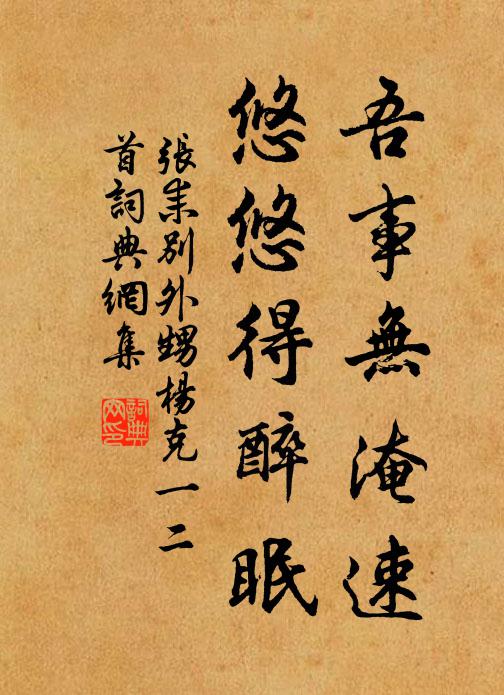 吾事無淹速
悠悠得醉眠
張耒別外甥楊克一二
首詞典網集
詞典網印